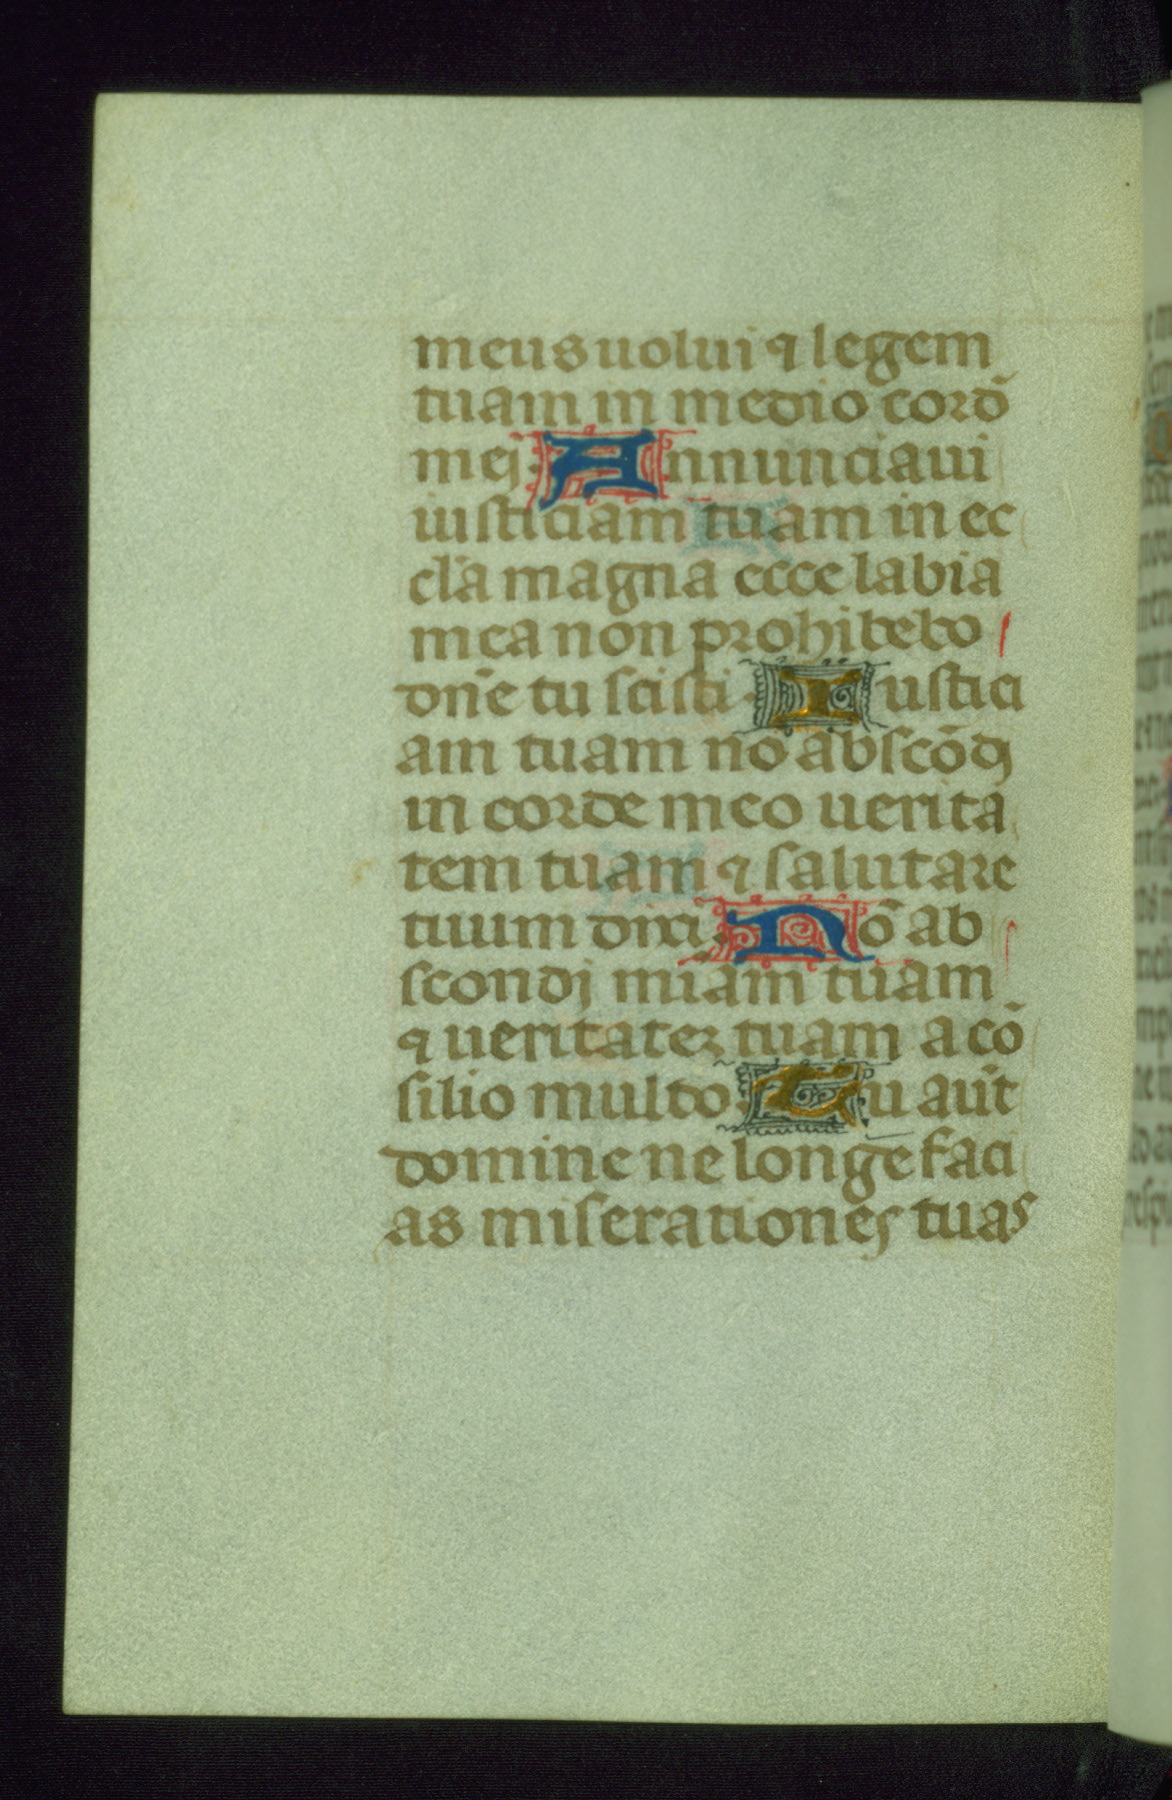 meus uolui ⁊ legem
tuam in medio cord̄
mei. Annunciaui
iusticiam tuam in ec
cl̄a magna ecce labia
mea non prohibebo
dn̄e tu scisti. Iustici
am tuam nō abscōdi
in corde meo uerita
tem tuam ⁊ salutare
tuum dixi. Nō ab
scondi mīam tuam
⁊ ueritatez tuam a cō
silio multo. Tu aut̄
domine ne longe faci
as miserationes tuas